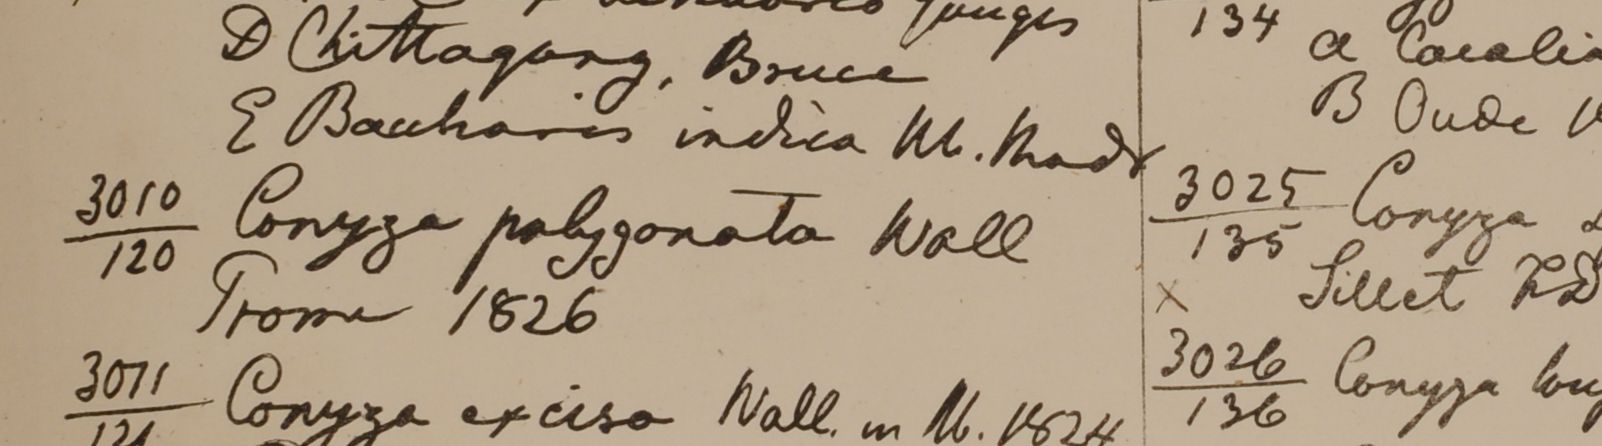 ganges
D Chittagong, Bruce
E Baccharis indica M. Madr
3010
120
Conyza polygonata Wall
Prome 1826
3011
121
Conyza excisa Wall. in M. 1824
134
a Cacalia
B Oude
3025
135
Conyza
× Sillet FD
3026
136
Conyza